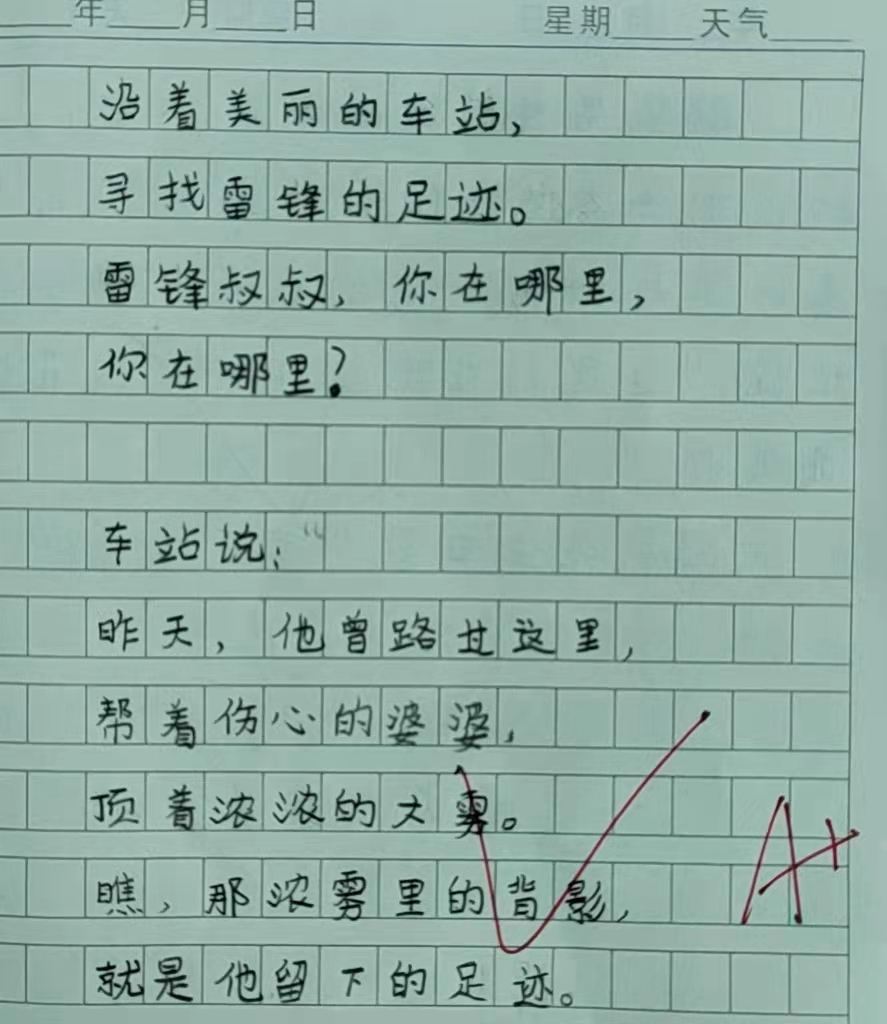 年 月 日 星期 天气
沿着美丽的车站，
寻找雷锋的足迹。
雷锋叔叔，你在哪里，
你在哪里？
车站说：“
昨天，他曾路过这里，
帮着伤心的婆婆，
顶着浓浓的大雾。
瞧，那浓雾里的背影，
就是他留下的足迹。
A+